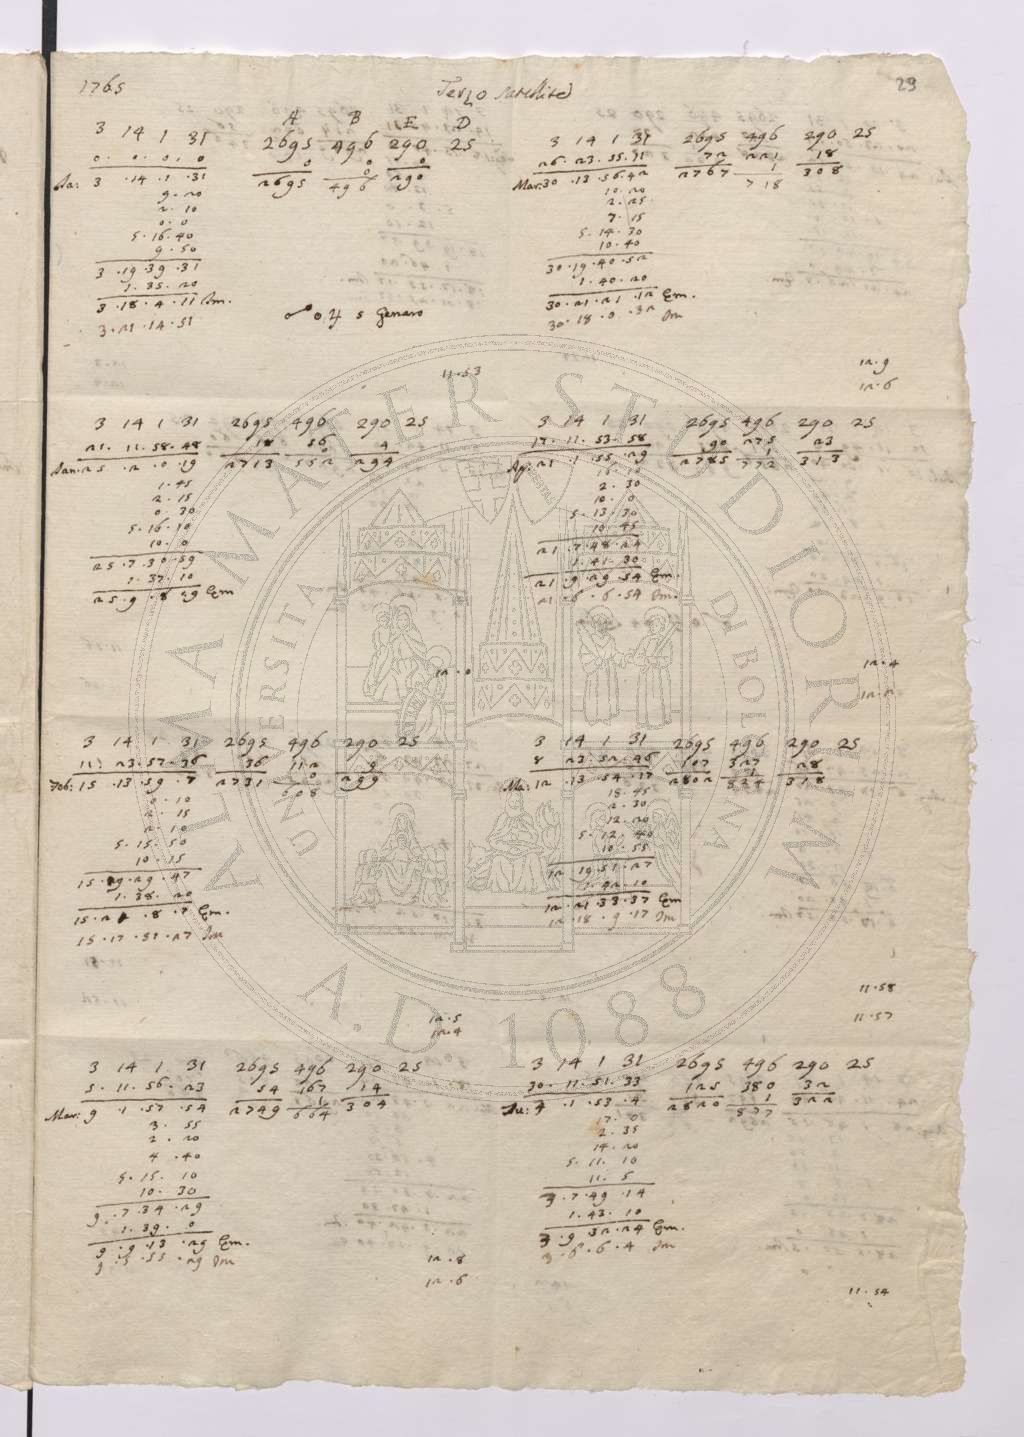 1765 Terzo satellite 29
A B E D
3 14 1 31 2695 496 290 25
0. 0. 0. 0 0 0 0
Ja: 3 .14 .1 .31 2695 496 290
9. 20
2. 10
0. 0
5. 16. 40
9. 50
3 .19 .39 .31
1. 35. 20
3 .18 .4 .11 Im.
3. 21 .14 .51
☍ ☉ ♃ 5 Genaro
11.53
3 14 1 31 2695 496 290 25
21. 11. 58. 48 18 56 4
Jan: 25 .2 .0 .19 2713 552 294
1. 45
2. 15
0 30
5. 16. 10
10. 0
25 .7 .30 .59
1. 37. 10
25 .9 .8 .29 Em
12.0
3 14 1 31 2695 496 290 25
11. 23. 57. 36 36 112 9
Feb: 15 .13 .59 .7 2731 0 299
608
0. 10
2. 15
2. 10
5. 15. 50
10. 15
15 .19 .29 .47
1. 38. 20
15 .21 .8 .7 Em.
15 .17 .51 .27 Im
12.5
12.4
3 14 1 31 2695 496 290 25
5. 11. 56. 23 54 167 14
Mar: 9 .1 .57 .54 2749 1 304
664
3. 55
2. 20
4 .40
5. 15. 10
10. 30
9 .7 34 .29
1. 39. 0
9 .9 .13 .29 Em.
9 .5 .55 .29 Im
12.8
12.6
3 14 1 31 2695 496 290 25
26. 23. 55. 11 72 221 18
Mar: 30 .13 .56.42 2767 1 308
718
10. 20
2. 25
7. 15
5. 14. 30
10. 40
30 .19 .40 .52
1. 40. 20
30 .21 .21 .12 Em.
30 .18 .0 .32 Im
12.9
12.6
3 14 1 31 2695 496 290 25
17. 11. 53. 58 90 275 23
Ap: 21 .1 .55 .29 2785 1 313
772
16. 10
2. 30
10. 0
5. 13. 30
10. 45
21 .7 .48 .24
1. 41. 30
21 .9 .29 .54 Em.
21 .6 .6 .54 Im.
12.4
12.2
3 14 1 31 2695 496 290 25
8 23. 52. 46 107 327 28
Ma: 12 .13 .54 .17 2802 1 318
824
18. 45
2. 30
12. 20
5. 12. 40
10. 55
12 19 51 .27
1. 42. 10
12 .21 33 .37 Em
12 .18 .9 .17 Im
11.58
11.57
3 14 1 31 2695 496 290 25
30. 11. 51. 33 125 380 32
Ju: 3 .1 .53 .4 2820 1 322
877
17. 0
2. 35
14. 20
5. 11. 10
11. 5
3 .7 .49 .14
1. 43. 10
3 .9 32 .24 Em.
3 .6 .6 .4 Im
11.54
ALMA MATER STUDIORUM
UNIVERSITÀ DI BOLOGNA
A.D. 1088